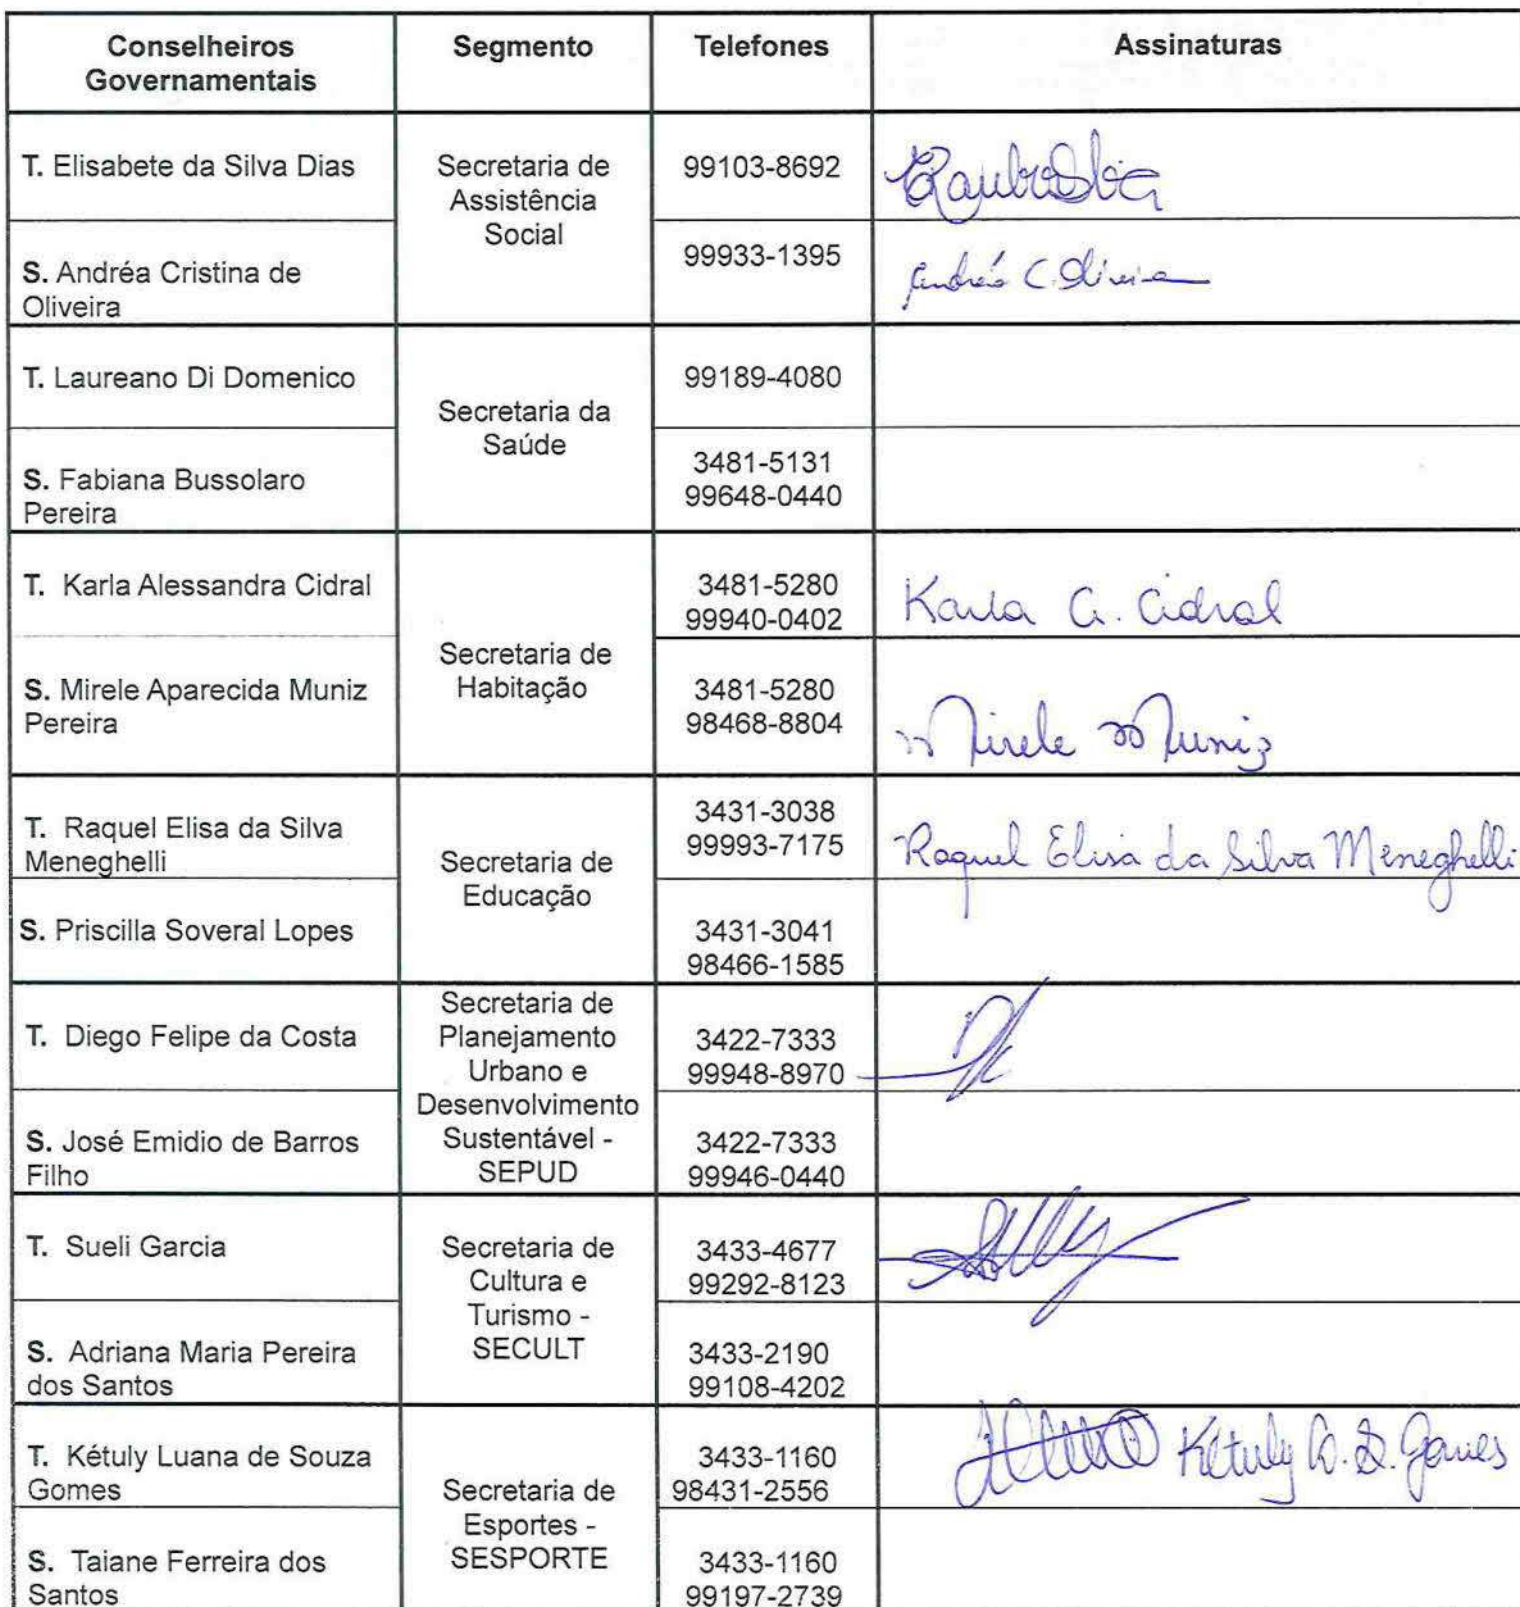 Conselheiros
Governamentais
Segmento
Telefones
Assinaturas
T. Elisabete da Silva Dias
Secretaria de
Assistência
Social
99103-8692
S. Andréa Cristina de
Oliveira
99933-1395
Andréa C. Oliveira
T. Laureano Di Domenico
Secretaria da
Saúde
99189-4080
S. Fabiana Bussolaro
Pereira
3481-5131
99648-0440
T. Karla Alessandra Cidral
Secretaria de
Habitação
3481-5280
99940-0402
Karla A. Cidral
S. Mirele Aparecida Muniz
Pereira
3481-5280
98468-8804
Mirele Muniz
T. Raquel Elisa da Silva
Meneghelli
Secretaria de
Educação
3431-3038
99993-7175
Raquel Elisa da Silva Meneghelli
S. Priscilla Soveral Lopes
3431-3041
98466-1585
T. Diego Felipe da Costa
Secretaria de
Planejamento
Urbano e
Desenvolvimento
Sustentável -
SEPUD
3422-7333
99948-8970
S. José Emidio de Barros
Filho
3422-7333
99946-0440
T. Sueli Garcia
Secretaria de
Cultura e
Turismo -
SECULT
3433-4677
99292-8123
S. Adriana Maria Pereira
dos Santos
3433-2190
99108-4202
T. Kétuly Luana de Souza
Gomes
Secretaria de
Esportes -
SESPORTE
3433-1160
98431-2556
Kétuly S. Gomes
S. Taiane Ferreira dos
Santos
3433-1160
99197-2739